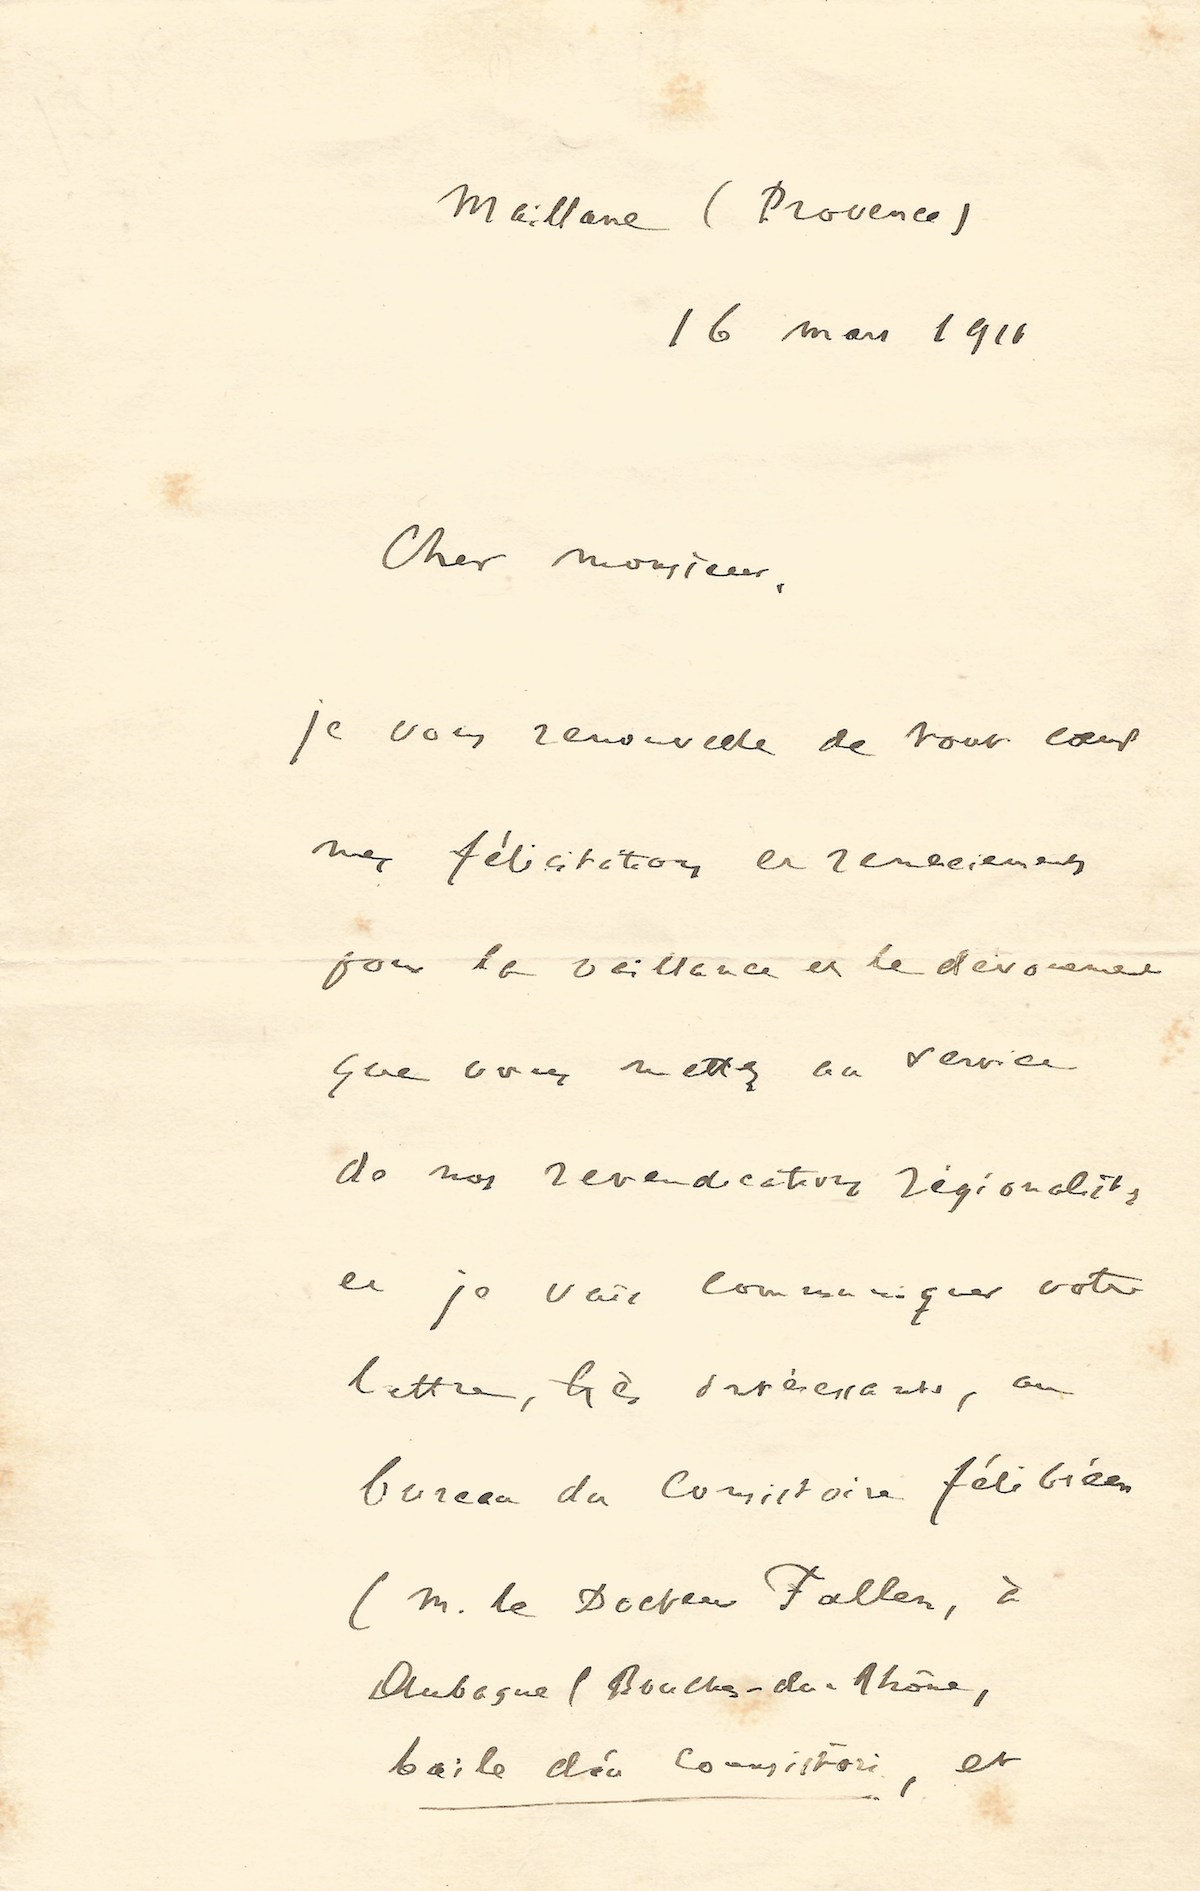 Maillane (Provence)
16 mars 1911
Cher monsieur,
je vous renouvelle de tout cœur
mes félicitations et remerciements
pour la vaillance et le dévouement
que vous mettez au service
de nos revendications régionalistes
et je vais communiquer votre
lettre, très intéressante, au
bureau du Consistoire félibréen
(M. le Docteur Fallen, à
Aubagne (Bouches-du-Rhône,
baile dóu Counsistòri, et